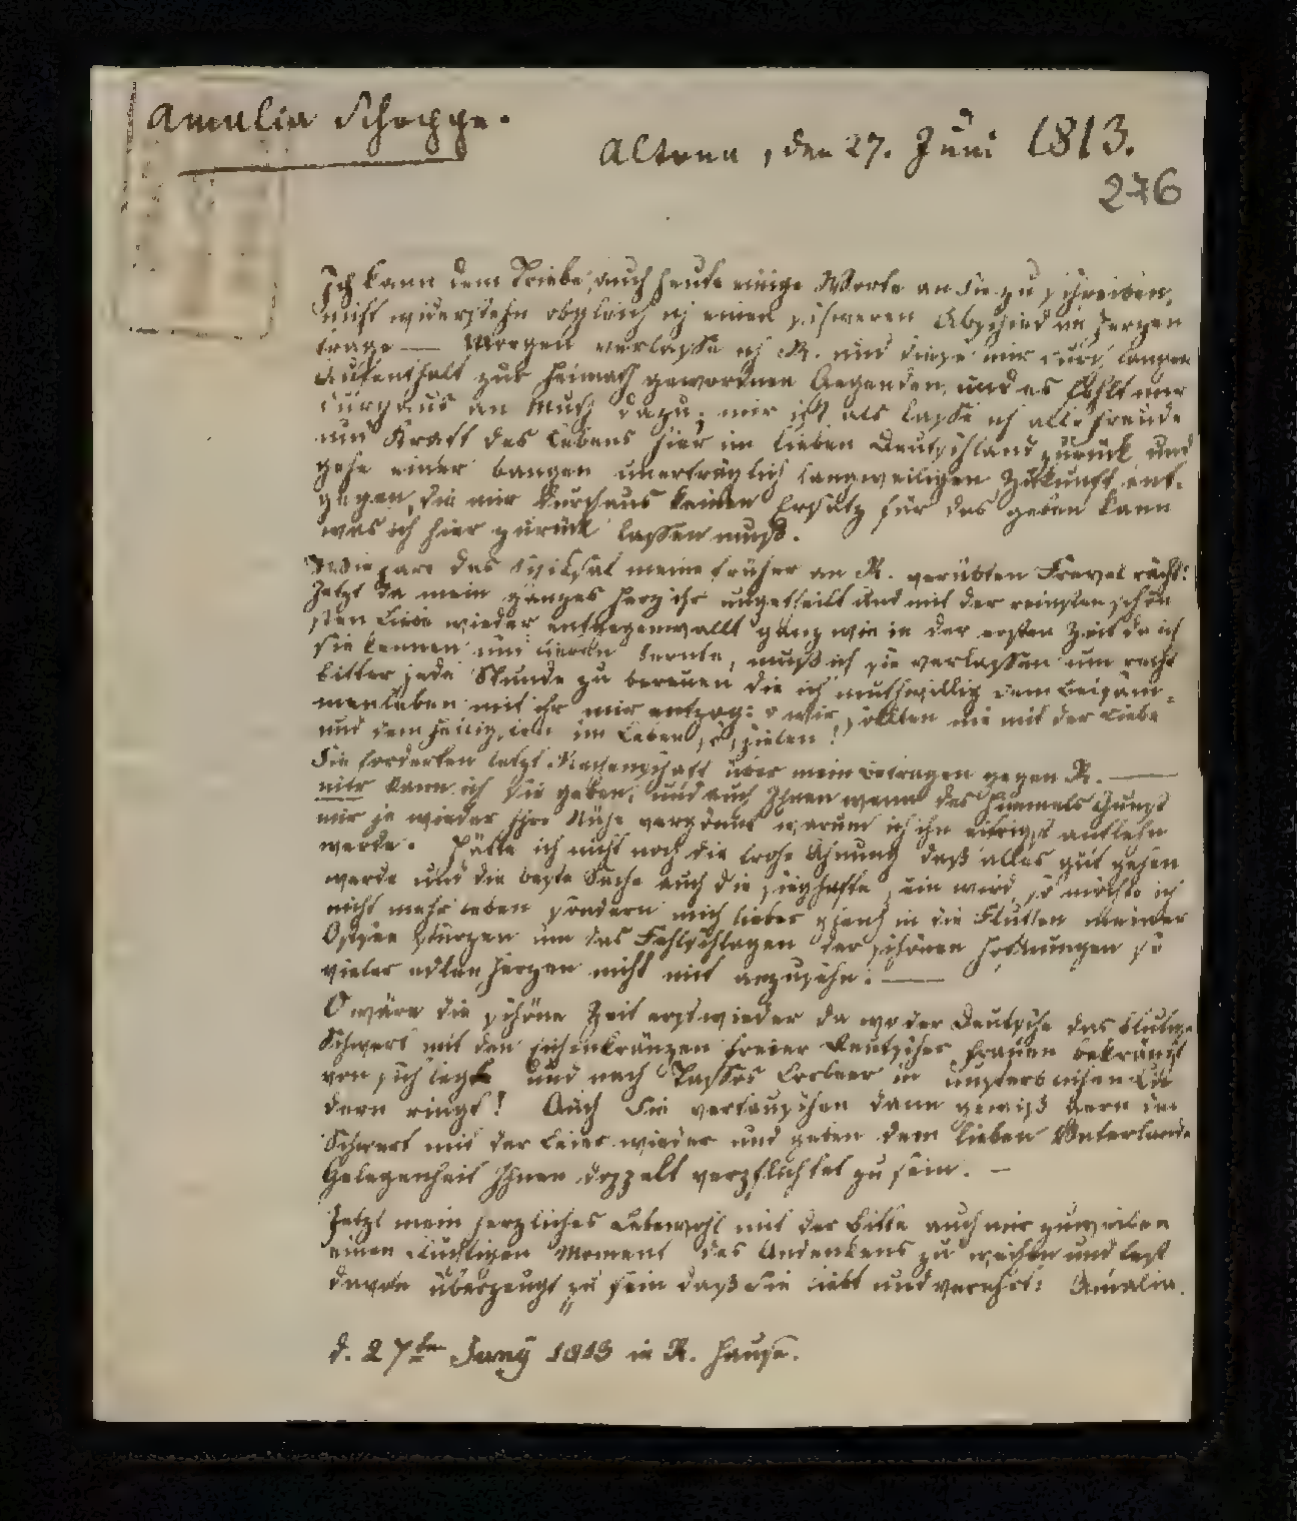 Amalia Schoppe.
Altona, den 27. Juni 1813.
276
Ich kann dem Triebe, auch heute einige Worte an Sie zu schreiben,
nicht widerstehn obgleich ich einen schweren Abschied im Herzen
trage — Morgen verlasse ich R. und diese mir durch langen
Aufenthalt zur Heimath gewordnen Gegenden, und es fehlt mir
durchaus an Muth dazu; mir ist als lasse ich alle Freude
und Kraft des Lebens hier im lieben Deutschland zurück und
gehe einer bangen unerträglich langweiligen Zukunft ent-
gegen, die mir durchaus keinen Ersatz für das geben kann
was ich hier zurück lassen muß.
Wie hart das Schicksal meine früher an R. verübten Frevel rächt!
Jetzt da mein ganzes Herz ihr ungetheilt und mit der reinsten schön
sten Liebe wieder entgegenwallt ganz wie in der ersten Zeit da ich
sie kennen und lieben lernte, muß ich sie verlassen um recht
bitter jede Stunde zu bereuen die ich muthwillig dem Beisam-
menleben mit ihr mir entzog: o wir sollten nie mit der Liebe
und dem Heiligsten im Leben so spielen!
Sie forderten letzt Rechenschaft über mein Betragen gegen R. —
nur kann ich sie geben, und auch Ihnen wenn des Himmels Gunst
mir je wieder Ihre Nähe vergönnt warum ich ihn eifrigst anflehn
werde. Hätte ich nicht noch die frohe Ahnung daß alles gut gehen
werde und die beste Sache auch die sieghafte sein wird, so möchte ich
nicht mehr leben sondern mich lieber gleich in die Fluthen meiner
Ostsee stürzen um das Fehlschlagen der schönen Hoffnungen so
vieler edlen Herzen nicht mit anzusehn. —
O wäre die schöne Zeit erst wieder da wo der Deutsche das blutige
Schwert mit den Eichenkränzen freier Deutscher Frauen bekränzt
von sich legt und nach Tassos Lorbeer in unsterblichen Lie
dern ringt! Auch Sie vertauschen dann gewiß gern das
Schwert mit der Leier wieder und geben dem lieben Vaterlande
Gelegenheit Ihnen doppelt verpflichtet zu sein. —
Jetzt mein herzliches Lebewohl mit der Bitte auch mir zuweilen
einen flüchtigen Moment des Andenkens zu weihen und fest
davon überzeugt zu sein daß Sie liebt und verehrt: Amalia.
d. 27ten Juny 1813 in R. Hause.